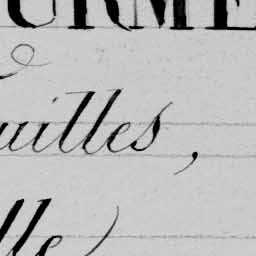 URME
uilles,
lle)